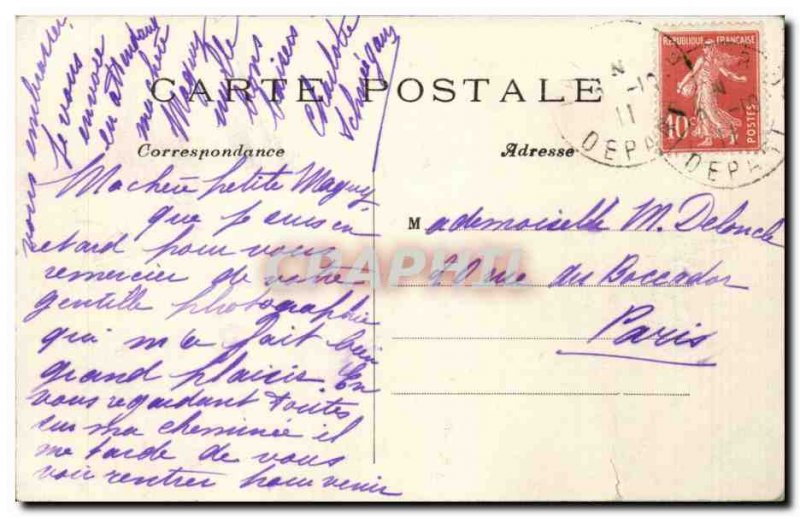 CARTE POSTALE
Correspondance
Adresse
Ma chère petite Maguy,
que je suis en
retard pour vous
remercier de votre
gentille photographie
qui m'a fait bien
grand plaisir. En
vous regardant toutes
sur ma cheminée il
me tarde de vous
voir rentrer pour venir
vous embrasser.
Je vous
envoie
en attendant
ma chère
Maguy
mille
bons
baisers
Charlotte
Mademoiselle M. Deloncle
20 rue du Boccador
Paris
REPUBLIQUE FRANÇAISE
10c
POSTES
11
DEPART
DEPART
CPAPHIL